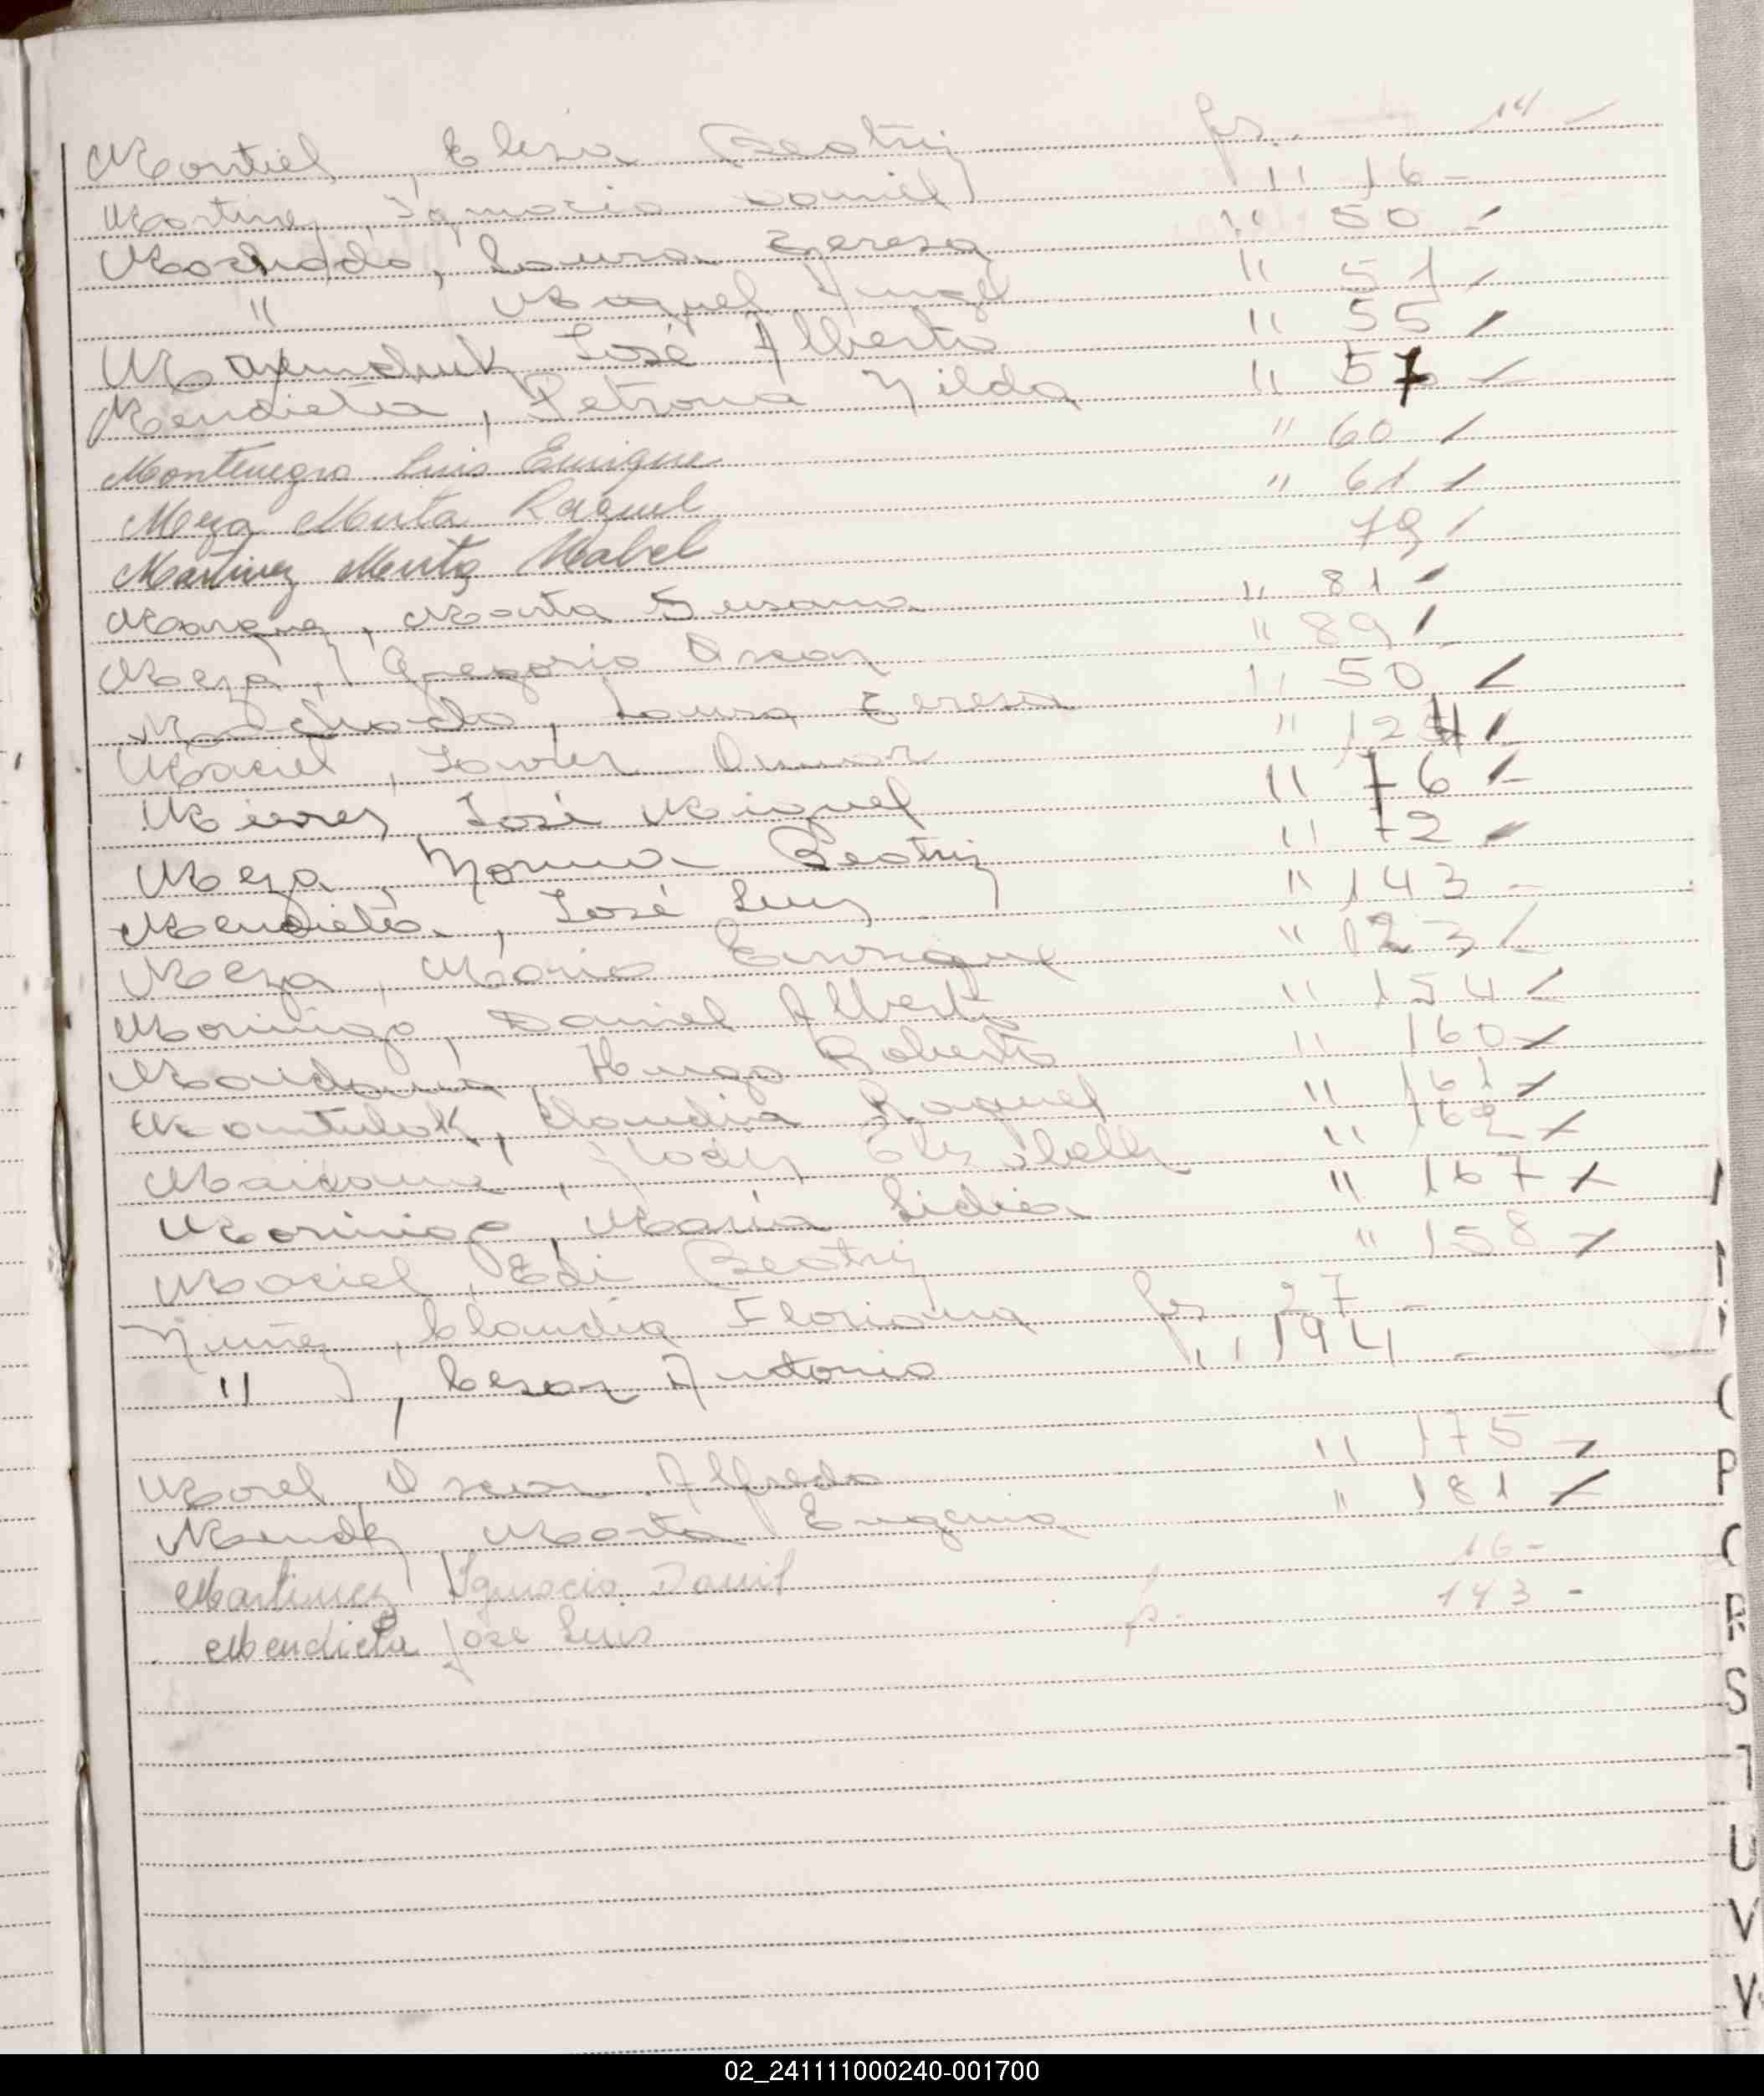 Montiel, Elisa Beatriz fs. 14 -
Martinez, Ignacio Daniel " 16 -
Machado, Laura Teresa " 50 -
" Miguel Angel " 51 -
José Alberto " 55 -
Mendieta, Petrona Nilda " 57 -
Montenegro Luis Enrique " 60 -
Meza Mirta Raquel " 61 -
Martinez Mirta Mabel 79 -
Marquez, Marta Susana " 81 -
Meza, Gregorio Oscar " 89 -
Machado, Laura Teresa " 50 -
Maciel, Javier Omar " 124 -
Mieres, José Miguel " 76 -
Meza, Norma Beatriz " 72 -
Mendieta, José Luis " 143 -
Meza, Mario Enrique " 123 -
Moringo, Daniel Alberto " 154 -
Maidana, Hugo Roberto " 160 -
Mantulak, Claudia Raquel " 161 -
Maidana, Gladys " 162 -
Morinigo, María Lidia " 167 -
Maciel, Edi Beatriz " 158 -
Nuñez, Claudia Floriana fs. 27 -
" , Cesar Antonio " 194 -
Morel, Oscar Alfredo " 175 -
Mendez, Marta Eugenia " 181 -
Martinez Ignacio Daniel 16 -
Mendieta Jose Luis 143 -
P
R
S
T
U
V
02_241111000240-001700